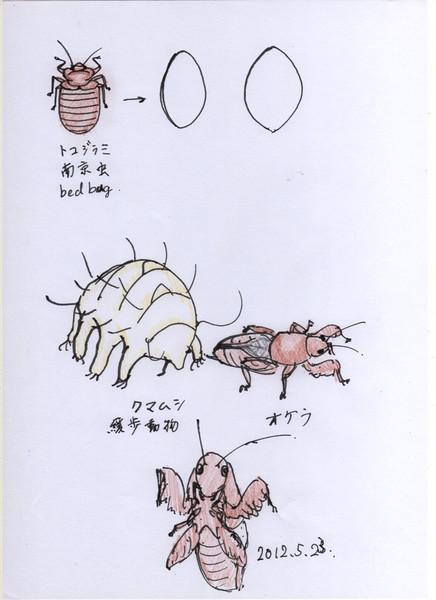 トコジラミ
南京虫
bed bug.
クマムシ
緩歩動物
オケラ
2012.5.23.